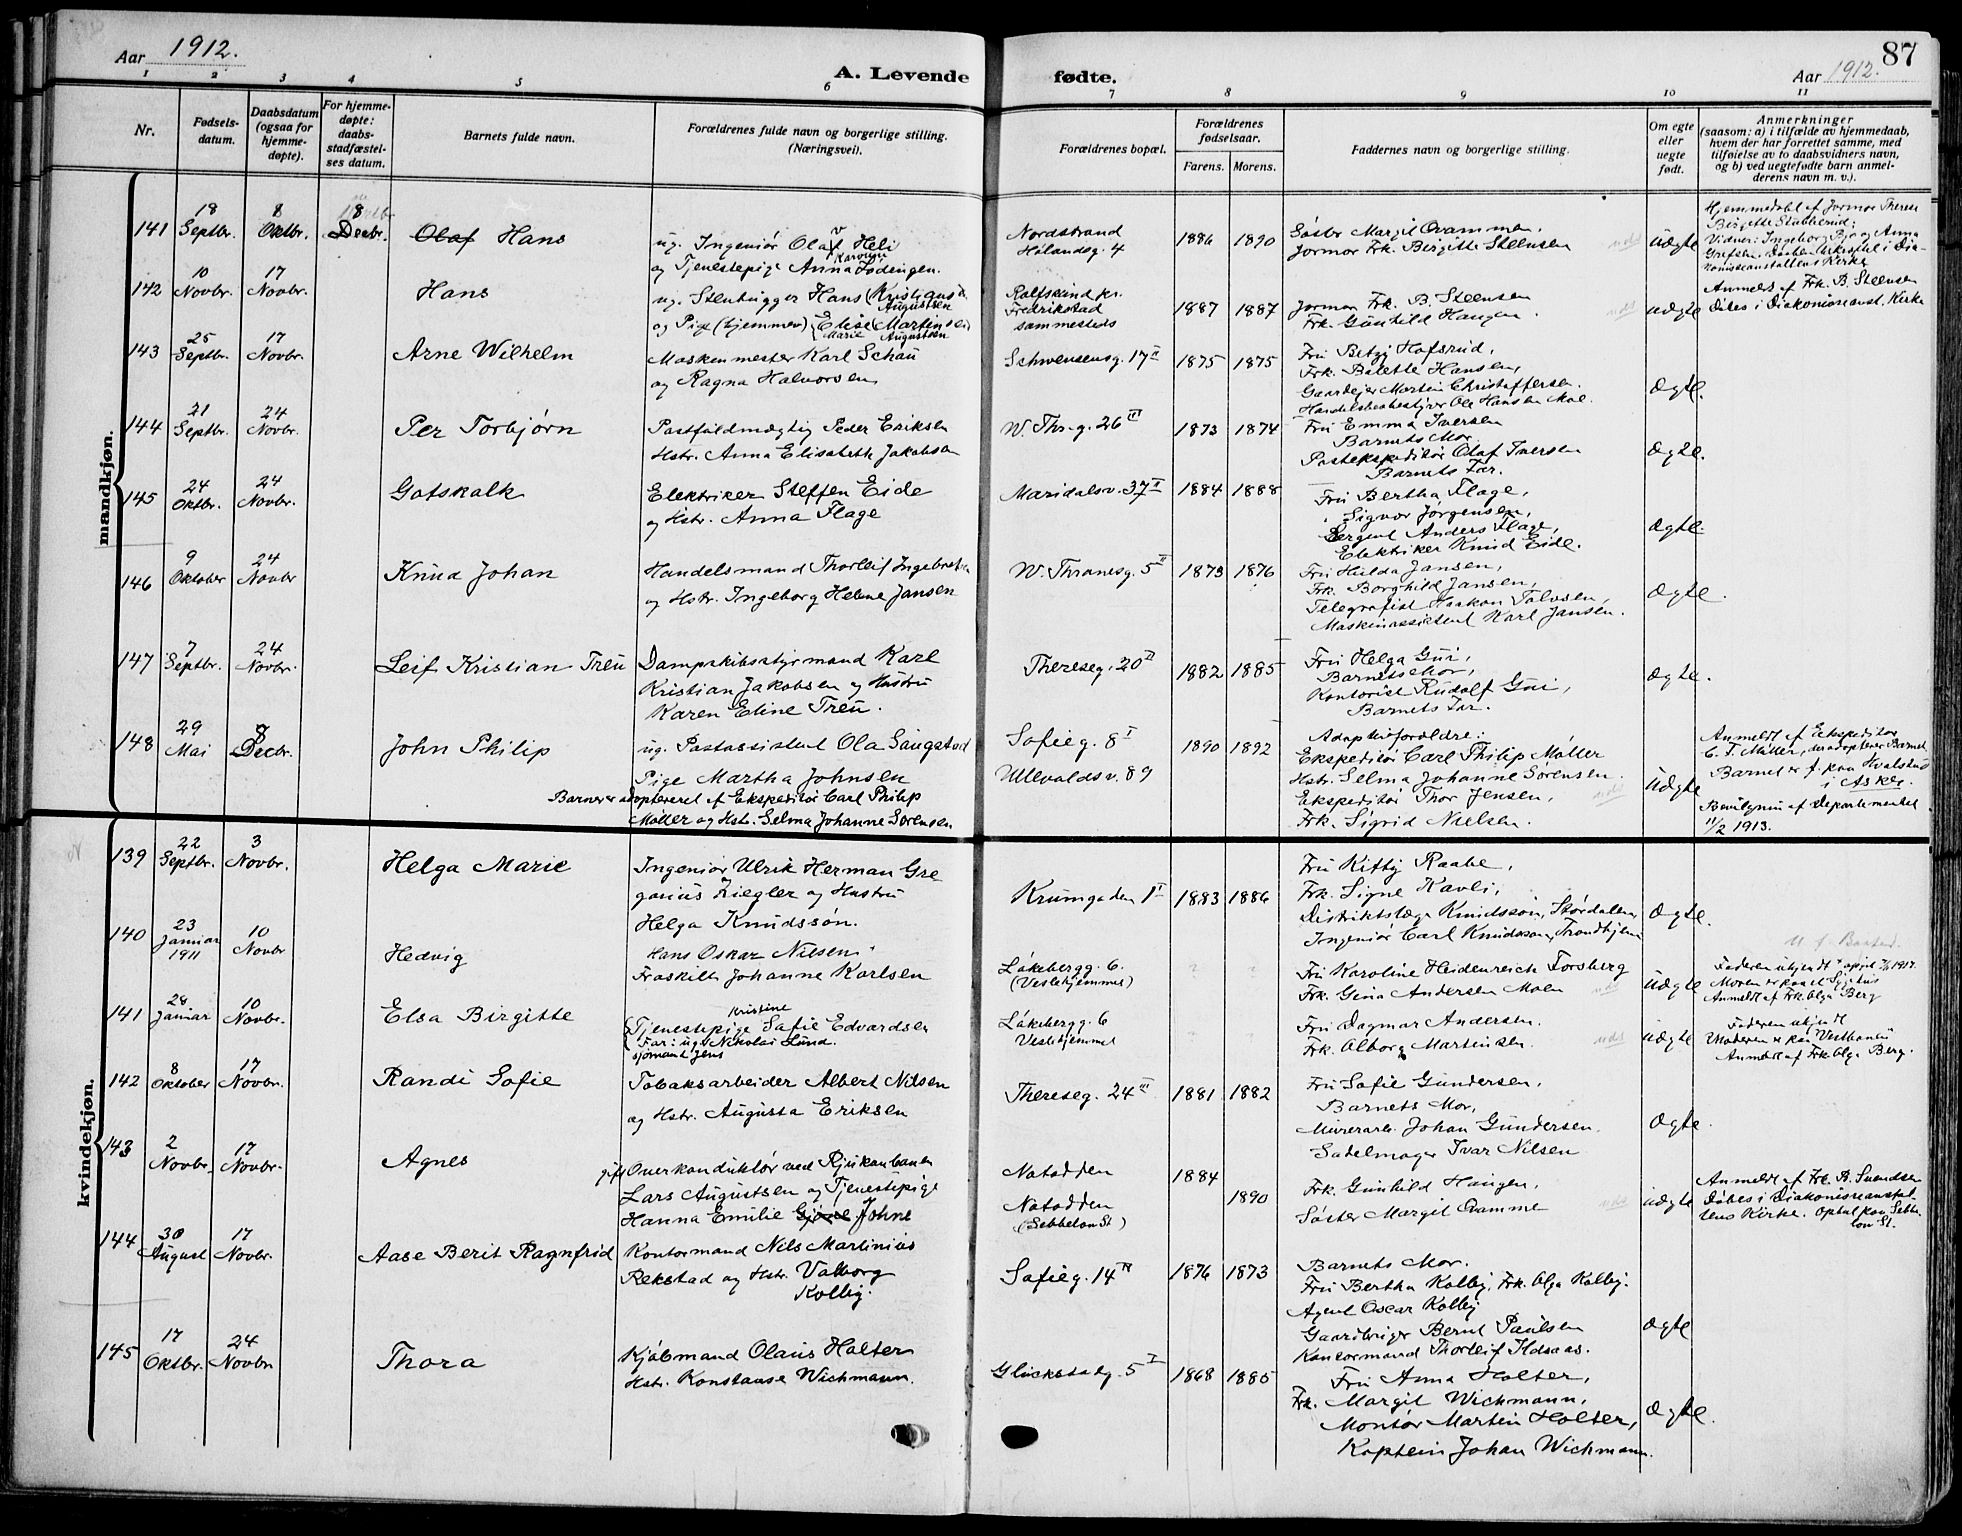 Aar 1912.
A. Levende fødte.
Aar 1912.
87
1 2 3 4 5 6 7 8 9 10 11
Nr.
Fødselsdatum.
Daabsdatum (ogsaa for hjemmedøpte).
For hjemmedøpte: daabsstadfæstelses datum.
Barnets fulde navn.
Forældrenes fulde navn og borgerlige stilling. (Næringsvei).
Forældrenes bopæl.
Forældrenes fødselsaar.
Farens. Morens.
Faddernes navn og borgerlige stilling.
Om egte eller uegte født.
Anmerkninger (saasom: a) i tilfælde av hjemmedaab, hvem der har forrettet samme, med tilføielse av to daabsvidners navn, og b) ved uegtefødte barn anmelderens navn m. v.).
mandkjøn.
141 18 Septbr. 8 Oktbr. 8 Decbr. Olaf Hans
ug. Ingeniør Olaf Heli
og Tjenestepige Anna Karoline
Nordstrand
Hølandsg. 4
1886 1890
Søster Margit Qvammen,
Jormor Frk. Birgitte Steensen
uægte
Hjemmedøbt af Jormor Therese
Birgitte Stubberud;
Vidner: Ingeborg Bjø og Anna
Grefsen. Daaben bekræftet i Dia-
konisseanstaltens Kirke
142 10 Novbr. 17 Novbr. Hans
ug. Stenhugger Hans Kristian
Augustsen
og Pige (hjemmev) Elise Martinsen
Marie Augustsen
Rolfsøsund pr.
Fredrikstad
sammesteds
1887 1887
Jormor Frk. B. Steensen
Frk. Gunhild Haugen.
uægte
Anmeldt af Frk. B. Steensen
Døbes i Diakonisseanst. Kirke
143 25 Septbr. 17 Novbr. Arne Wilhelm
Maskinmester Karl Schau
og Ragna Halvorsen
Schwensensg. 17 II
1875 1875
Fru Betzy Hofsrud,
Frk. Balette Hansen,
Gaardejer Martin Christoffersen.
Handelsbestyrer Ole Hansen Moe.
Ægte.
144 21 Septbr. 24 Novbr. Per Torbjørn
Postfuldmægtig Peder Eriksen
Hstr. Anna Elisabeth Jakobsen
W. Thr. g. 26 III
1873 1874
Fru Emma Iversen
Barnets Mor.
Postekspeditør Olaf Iversen
Barnets Far.
Ægte.
145 24 Oktbr. 24 Novbr. Gotskalk
Elektriker Steffen Eide
og Hstr. Anna Flage
Maridalsv. 37 II
1884 1888
Fru Bertha Flage,
" Signor Jørgensen,
Sergent Anders Flage,
Elektriker Knud Eide.
Ægte.
146 9 Oktober 24 Novbr Knud Johan
Handelsmand Thorleif Ingebretsen
og Hstr. Ingeborg Helene Jansen
W. Thranesg. 5 II
1873 1876
Fru Hulda Jansen,
Frk. Borghild Jansen,
Telegrafist Haakon Tolvsen,
Maskinassistent Karl Jansen.
Ægte.
147 7 Septbr. 24 Novbr. Leif Kristian Treu
Dampskibsstyrmand Karl
Kristian Jakobsen og Hustru
Karen Eline Treu.
Thereseg. 20 II
1882 1885
Fru Helga Gui,
Barnets Mor,
Kontorist Rudolf Gui,
Barnets Far.
Ægte.
148 29 Mai 8 Decbr. John Philip
ug. Postassistent Ola Saugstad
Pige Martha Johnsen
Barnet er adopteret af Ekspeditør Carl Philip
Møller og Hst. Selma Johanne Sørensen
Sofieg. 8 I
Ullevaldsv. 89
1890 1892
Adoptivforældre:
Ekspeditør Carl Philip Møller
Hstr. Selma Johanne Sørensen.
Ekspeditør Thor Jensen,
Frk. Sigrid Nielsen.
uægte
Anmeldt af Ekspeditør
C. F. Møller, der adopterer Barnet
Barnet er f. paa Hvalstad
i Asker.
Bevilgning af Departementet
11/2 1913.
kvindekjøn.
139 22 Septbr. 3 Novbr. Helga Marie
Ingeniør Ulrik Herman Gre
gorius Ziegler og Hustru
Helga Knudssøn.
Krumgaden 1 I
1883 1886
Fru Kitty Raabe,
Frk. Signe Kavli,
Distriktslæge Knudssøn, Størdalen,
Ingeniør Carl Knudssøn, Trondhjem
Ægte.
140 23 Januar 1911 10 Novbr Hedvig
Hans Oskar Nilsen
Fraskilt Johanne Karlsen
Løkebergg. 6.
(Veslehjemmet)
? ?
Fru Karoline Heidenreich Forsberg
Frk. Gina Andersen Moen
uægte
Faderen ukjendt
Moren er paa et Sygehus
Anmeldt af Frk. Olga Berg
141 28 Januar 10 Novbr. Elsa Birgitte
Tjenestepige Kristine Sofie Edvardsen
Far: ug. Nikolai Lund.
sjømand Jens
Løkebergg. 6
Veslehjemmet
Fru Dagmar Andersen.
Frk. Alborg Martinsen.
uægte
Faderen ukjendt
Moderen er paa Vestbanen
Anmeldt af Frk. Olga Berg.
142 8 Oktober 17 Novbr. Randi Sofie
Tobaksarbeider Albert Nilsen
og Hstr. Augusta Eriksen
Thereseg. 24 III
1881 1882
Fru Sofie Gundersen,
Barnets Mor,
Murerarb. Johan Gundersen,
Sadelmager Ivar Nilsen
Ægte.
143 2 Novbr. 17 Novbr. Agnes
gift Overkonduktør ved Rjukanbanen
Lars Augustsen og Tjenestepige
Hanna Emilie Johne
Notodden
Notodden
(Sebbelow St)
1884 1890
Frk. Gunhild Haugen,
Søster Margit Qvamme
uægte
Anmeldt af Frk. B. Svendsen
Døbes i Diakonisseanstal-
tens Kirke. Ophol. paa Sebbe
low St.
144 30 August 17 Novbr. Aase Berit Ragnfrid
Kontormand Nils Martinius
Rekstad og Hstr. Valborg
Kolby.
Sofieg. 14 IV
1876 1873
Barnets Mor.
Fru Bertha Kolby, Frk. Olga Kolby.
Agent Oscar Kolby
Gaardbruger Bernt Paulsen
Kontormand Thorleif Ildsaas.
Ægte
145 17 Oktbr. 24 Novbr Thora
Kjøbmand Olaus Holter
Hstr. Konstanse Wichmann.
Glückstadg. 5 I
1868 1885
Fru Anna Holter,
Frk. Margit Wichmann,
Montør Martin Holter,
Kaptein Johan Wichmann.
Ægte.